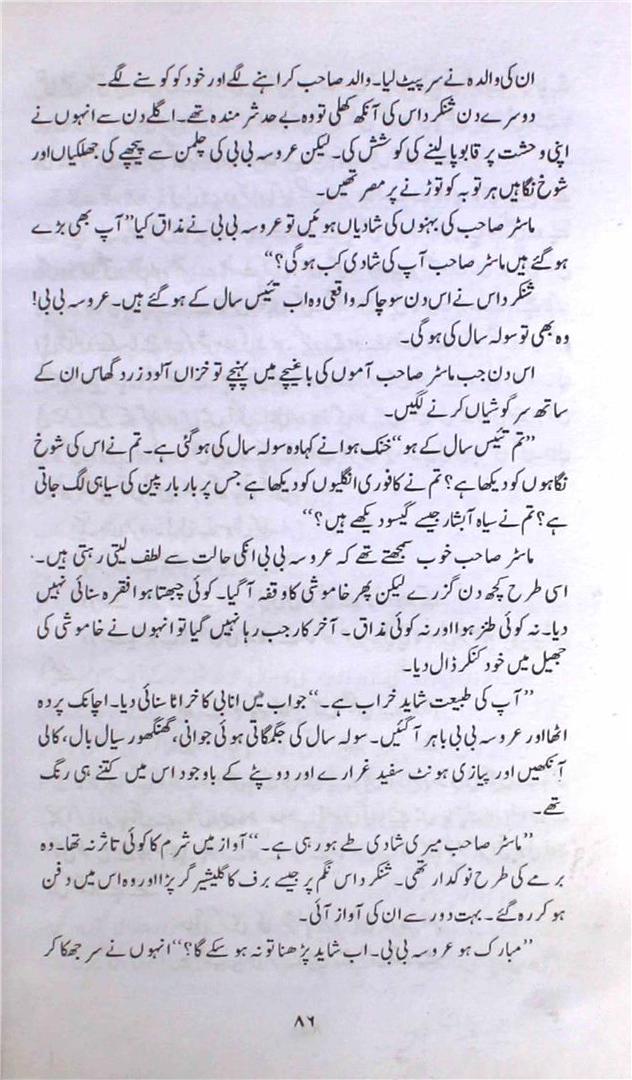 ان کی والدہ نے سر پیٹ لیا۔ والد صاحب کراہنے لگے اور خود کو کوسنے لگے۔
دوسرے دن شنکر داس کی آنکھ کھلی تو وہ بے حد شرمندہ تھے۔ اگلے دن سے انہوں نے
اپنی وحشت پر قابو پالینے کی کوشش کی۔ لیکن عروسہ بی بی کی چلمن سے پیچھے کی جھلکیاں اور
شوخ نگاہیں ہر توبہ کو توڑنے پر مصر تھیں۔
ماسٹر صاحب کی بہنوں کی شادیاں ہوئیں تو عروسہ بی بی نے مذاق کیا ”آپ بھی بڑے
ہو گئے ہیں ماسٹر صاحب آپ کی شادی کب ہو گی؟“
شنکر داس نے اس دن سوچا کہ واقعی وہ اب تئیس سال کے ہو گئے ہیں۔ عروسہ بی بی!
وہ بھی تو سولہ سال کی ہو گی۔
اس دن جب ماسٹر صاحب آموں کی باغیچے میں پہنچے تو خزاں آلود زرد گھاس ان کے
ساتھ سرگوشیاں کرنے لگیں۔
”تم تئیس سال کے ہو“ خنک ہوا نے کہا وہ سولہ سال کی ہو گئی ہے۔ تم نے اس کی شوخ
نگاہوں کو دیکھا ہے؟ تم نے کافوری انگلیوں کو دیکھا ہے جس پر بار بار پین کی سیاہی لگ جاتی
ہے؟ تم نے سیاہ آبشار جیسے گیسو دیکھے ہیں؟“
ماسٹر صاحب خوب سمجھتے تھے کہ عروسہ بی بی انکی حالت سے لطف لیتی رہتی ہیں۔
اسی طرح کچھ دن گزرے لیکن پھر خاموشی کا وقفہ آ گیا۔ کوئی چبھتا ہوا فقرہ سنائی نہیں
دیا۔ نہ کوئی طنز ہوا اور نہ کوئی مذاق۔ آخر کار جب رہا نہیں گیا تو انہوں نے خاموشی کی
جھیل میں خود کنکر ڈال دیا۔
”آپ کی طبیعت شاید خراب ہے۔“ جواب میں انا بی کا خراٹا سنائی دیا۔ اچانک پردہ
اٹھا اور عروسہ بی بی باہر آ گئیں۔ سولہ سال کی جگمگاتی ہوئی جوانی، گھنگھور سیال بال، کالی
آنکھیں اور پیازی ہونٹ سفید غرارے اور دوپٹے کے باوجود اس میں کتنے ہی رنگ
تھے۔
”ماسٹر صاحب میری شادی طے ہو رہی ہے۔“ آواز میں شرم کا کوئی تاثر نہ تھا۔ وہ
برمے کی طرح نوکدار تھی۔ شنکر داس نگم پر جیسے برف کا گلیشیر گر پڑا اور وہ اس میں دفن
ہو کر رہ گئے۔ بہت دور سے ان کی آواز آئی۔
”مبارک ہو عروسہ بی بی۔ اب شاید پڑھنا تو نہ ہو سکے گا؟“ انہوں نے سر جھکا کر
۸۶